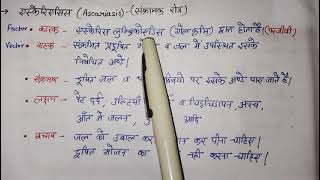 एस्केरिएसिस (Ascariasis) - (संक्रामक रोग)
Factor → कारक → एस्केरिस लुम्ब्रिकॉइडिस (गोलकृमि) द्वारा होता है। (परजीवी)
Vector → वाहक → संक्रमित प्रदूषित व जल में उपस्थित इसके
निषेचित अण्डे।
→ संक्रमण → दूषित जल व पर इसके अण्डे पाए जाते हैं।
→ लक्षण → पेट दर्द, उल्टियाँ व चिड़चिड़ापन, अपच,
आँत में जलन, आदि
→ बचाव → जल को उबाल कर कर पीना चाहिए।
दूषित भोजन का नहीं करना चाहिए।